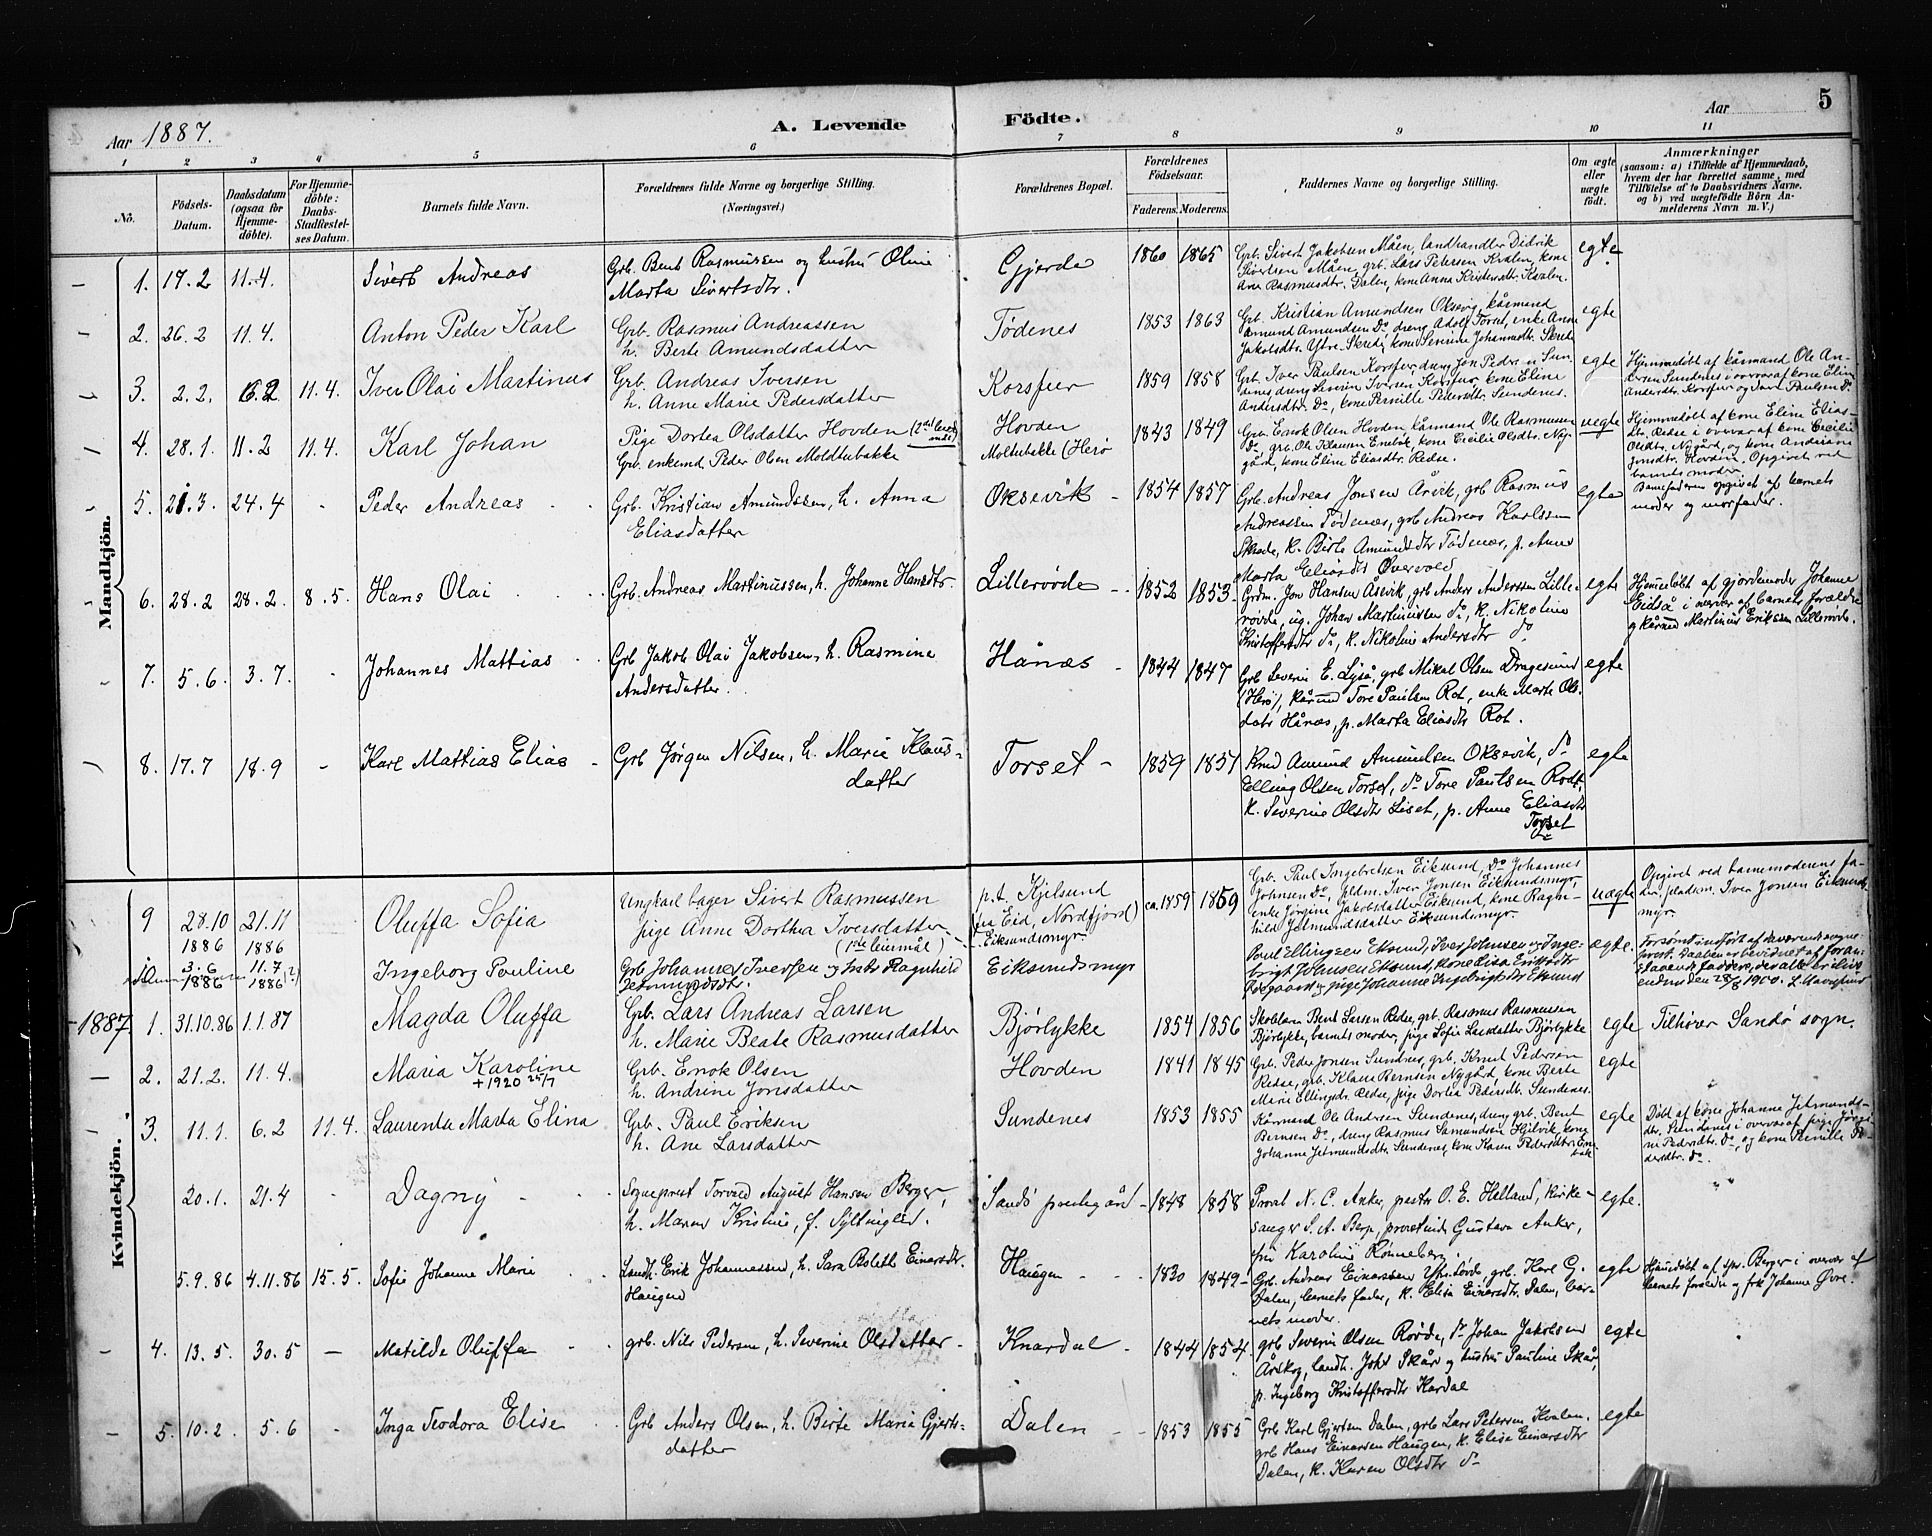 Aar 1887.
A. Levende
Fødte.
Aar
5
1 2 3 4 5 6 7 8 9 10 11
No.
Fødsels-
Datum.
Daabsdatum
(ogsaa for
Hjemme-
døbte).
For Hjemme-
døbte:
Daabs-
Stadfæstel-
ses Datum.
Barnets fulde Navn.
Forældrenes fulde Navne og borgerlige Stilling.
(Næringsvei.)
Forældrenes Bopæl.
Forældrenes
Fødselsaar.
Faderens. Moderens.
Faddernes Navne og borgerlige Stilling.
Om ægte
eller
uægte
født.
Anmærkninger
(saasom: a) i Tilfælde af Hjemmedaab,
hvem der har forrettet samme, med
Tilføielse af to Daabsvidners Navne.
og b) ved uægtefødte Børn An-
melderens Navn m. V.)
Mandkjøn.
1. 17.2 11.4. Sivert Andreas
Grb. Bent Rasmussen og hustru Oline
Marta Sivertsdtr.
Gjerde 1860 1865
Grb. Sivert Jakobsen Måen, landhandler Didrik
Sivertsen Måen, grb. Lars Petersen Kvalen, kone
Ane Rasmusdtr. Dalen, kone Anna Kristensdtr. Kvalen.
egte.
2. 26.2 11.4. Anton Peder Karl
Grb. Rasmus Andreassen
h. Berte Amundsdatter
Tødenes 1853 1863
Grb. Kristian Amundsen Oksevig, kårmand
Amund Amundsen Do, dreng Adolf Torset, enke Anne
Jakobsdtr. Ytre-Skrede, kone Severine Johannesdtr. Skrede
egte
3. 2.2. 6.2 11.4. Iver Olai Martinus
Grb. Andreas Iversen
h. Anne Marie Pedersdatter
Korsfur 1859 1858
Grb. Iver Paulsen Korsfur, dreng Jon Peders. Sun-
denes, dreng Severin Iversen Korsfur, kone Eline
Andersdtr. Do, kone Pernille Pedersdtr. Sundenes.
egte
Hjemmedøbt af kårmand Ole An-
dersen Sundenes i overvær af kone Eline
Andersdtr. Korsfur og Iver Paulsen Do.
4. 28.1. 11.2 11.4. Karl Johan
Pige Dortea Olsdatter Hovden
Grb. enkemd. Peder Olsen Moldtubakke
Hovden
Moltubakke (Herø
1843 1849
Grb. Enok Olsen Hovden, kårmand Ole Rasmussen
Do, grb. Ole Klausen Enebok, kone Cecilie Olsdtr. Ny-
gård, kone Eline Eliasdtr. Redse.
uegte
Hjemmedøbt af kone Eline Elias-
dtr. Redse i overvær af kone Cecilie
Olsdtr. Nygård, og kone Andriane
Jonsdtr. Hovden. Opgivet ved
barnets moder.
Barnefaderen opgivet af barnets
moder og morfader.
5. 21.3. 24.4 - Peder Andreas
Grb. Kristian Amundssen, h. Anna
Eliasdatter
Oksevik - 1854 1857
Grb. Andreas Jonsen Årvik, grb Rasmus
Andreassen Tødenæs, grb Andreas Karlssen
Skrede, k. Birte Amundsdtr Tødenæs, p. Anne
Marta Eliasdtr Overvold
egte
6. 28.2 28.2. 8.5. Hans Olai
Grb. Andreas Martinussen, h. Johanne Hansdtr.
Lillerøvde 1852 1853.
Grdm. Jon Hansen Åsevik, grb Anders Anderssen Lille-
røvde, ug. Johan Martinussen do, k. Nikoline
Kristoffersdtr do, k. Nikoline Andersdtr do.
egte
Hjemedøbt af gjordemoder Johanne
Eidså i overvær af barnets forældre
og kårmd Martinus Eriksen Lillerøvde.
7. 5.6. 3.7. - Johannes Mattias
Grb Jakob Olai Jakobsen, h. Rasmine
Andersdatter.
Hånæs - 1844 1847
Grb Severin E. Lyså, grb Mikal Olsen Dragesund
(Herø), kårmd Tore Paulsen Rot, enke Marte Ols-
datr Hånæs, p. Marta Eliasdtr Rot.
egte
8. 17.7 18.9 - Karl Mattias Elias
Grb Jørgen Nilsen, h. Marie Klaus-
datter
Torset - 1859 1857
Kmd Amund Amundsen Oksevik, do
Elling Olsen Torset, do Tore Paulsen Rodt,
k. Severine Olsdtr Liset, p. Anne Eliasdtr
Torset
egte
Kvindekjøn.
9 28.10 1886 21.11 1886 Oluffa Sofia
Ungkarl Lager Sivert Rasmussen
pige Anne Dorthea Iversdatter
(1ste leiermål)
p.t. Kjelsund
fra Eid, Nordfjord)
Eiksundsmyr.
ca. 1859 1859
Grb. Paul Ingebretsen Eiksund, Do Johannes
Johnsen Do, pldm. Iver Jonsen Eiksundsmyr,
enke Jørgine Jakobsdatter Eiksund, kone Ragn-
hild Jetmundsdatter Eiksundsmyr.
uægte
Opgivet ved barnemoderens fa-
der pladsm. Iver Jonsen Eiksunds-
myr.
3.6 1886 11.7 1886 Ingeborg Pouline
Grb Johannes Iversen og hstr Ragnhild
Jetmundsdtr.
Eiksundsmyr
Poul Ellingsen Eksund, Iver Johnsen
Johnsen Eksund, kone Lisa Eriksdtr
pige Johanne Ingebrigtsdtr Eksund
ægte.
1887 1. 31.10.86 1.1.87 Magda Oluffa
Grb. Lars Andreas Larsen
h. Marie Beate Rasmusdatter
Bjørlykke 1854 1856
Skolelærer Bent Larsen Redse, grb. Rasmus Rasmussen
Bjørlykke, barnets moder, pige Sofie Larsdatter Bjørlykke
egte Tilhører Sandø sogn.
2. 21.2. 11.4. Maria Karoline
+1920 25/7
Grb. Enok Olsen
h. Andrine Jonsdatter
Hovden 1841 1845
Grb. Peder Jonsen Sundnes, grb. Knut Pedersen
Redse, grb. Klaus Bernsen Nygård, kone Berte
Marie Ellingsdtr. Redse, pige Dortea Pedersdtr. Sundenes.
egte
3. 11.1. 6.2 11.4. Laurentse Marta Elina
Grb. Paul Eriksen
h. Ane Larsdatter
Sundenes 1853 1855
Kårmand Ole Andersen Sundenes, dreng grb. Bent
Bernsen Do, dreng Rasmus Samundsen Hilvik, kone
Johanne Jetmundsdtr Sundenes, kone Karen Pedersdtr. Ene-
bak
egte
Døbt af kone Johanne Jetmunds-
dtr. Sundenes i overvær af pige Jørgi-
ne Pedersdtr. Do, og kone Pernille Pe-
dersdtr. do.
20.1. 21.4 - Dagny
Sogneprest Torvald August Hansen Berger,
h. Maren Kristine, f. Syltinglid.
Sandø prestegård - 1848 1858
Provst N. C. Anker, pastor O. E. Helland, kirke-
sanger S. A. Berg, provstinde Gustava Anker,
frü Karoline Rønneberg.
egte.
5.9.86 4.11.86 15.5. Sofie Johanne Marie
Landh. Erik Johannessen, h. Sara Bolette Einarsdtr.
Haugen
Haugen - - 1830 1842
Grb. Andreas Einarssen Ytre Løvde, grb. Karl G.
Dalen, barnets fader, k. Elisa Einersdtr. Dalen, bar-
nets moder.
egte
Hjemedøbt af spr. Berger i overvær af
barnets forældre og frk Johanne Øvre.
4. 13.5. 30.5 - Matilde Oluffa
grb. Nils Pedersen, h. Severine Olsdatter -
Knardal - 1844 1854.
grb Severin Olsen Røvde, do Johan Jakobsen
Årskog, landh. Joht Skåre og hustru Pauline Skår,
p. Ingeborg Kristoffersdtr Kardal
egte
5. 10.2. 5.6 - Inga Teodora Elise
Grb Anders Olsen, h. Birte Marie Gjerts-
datter
Dalen - 1853 1855
Grb Karl Gjertsen Dalen, grb Lars Petersen Kvalen.
grb Hans Einarsen Haugen, k. Elise Einarsdtr
Dalen, k. Karen Olsdtr do
egte